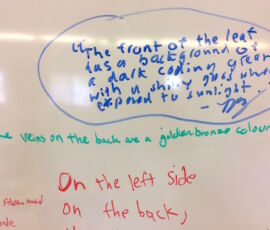 "The front of the leaf
has a background of
a dark coding green
with a shiny gloss when
exposed to sunlight.
veins on the back are a golden bronze colour
On the left side
on the back,